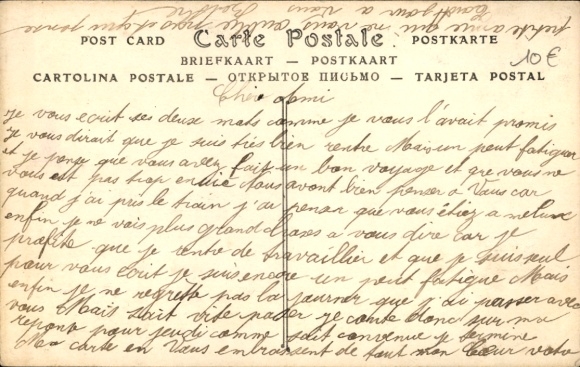 POST CARD Carte Postale POSTKARTE
BRIEFKAART — POSTKAART
CARTOLINA POSTALE — ОТКРЫТОЕ ПИСЬМО — TARJETA POSTAL
10 €
Cher Ami
Je vous ecuit ses deux mots comme je vous l'avait promis
Je vous dirait que je suis très bien rentre Mais un peut fatiguer
et je pense que vous avez fait un bon voyage et que vous ne
vous est pas trop Nous avont bien penser a Vous car
quand j'ai pris le train j'ai penser que vous étiez a
enfin je ne vais plus grand choses a vous dire car je
profite que je rentre de travaillier et que je suis seul
pour vous ecuit je suis encore un peut fatigue Mais
enfin je ne regrette pas la journer que j'ai passer avec
vous Mais sait vite passer je conte donc sur ma
reponse pour jeudi comme sait convenue je termine
Ma carte en Vous embrassent de tout mon Cœur votre
petite amie qui ne vous oublie pas et qui pense
toujours a vous